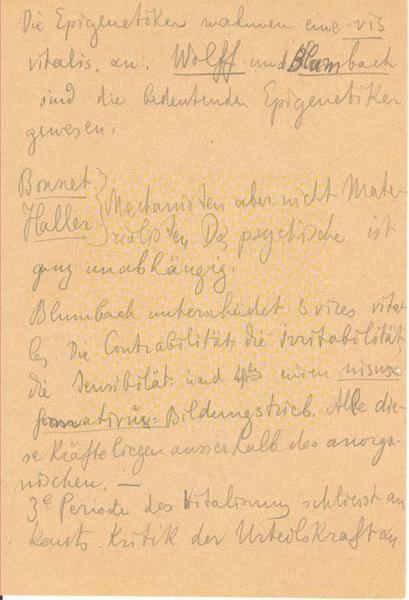 Die Epigenetiker nahmen eine vis
vitalis an. Wolff und Blumbach
sind die bedeutenden Epigenetiker
gewesen.
Bonnet
Haller } Mechanisten aber nicht Mate-
rialisten Das psychische ist
ganz unabhängig.
Blumbach unterscheidet 3 vires vita-
les Die Contrabilität, die irritabilität,
die Sensibilität und einen nisus
formativus = Bildungstrieb. Alle die-
se Kräfte liegen ausserhalb des anorga-
nischen. —
3e Periode des Vitalismus schliesst an
Kants Kritik der Urteilskraft an.